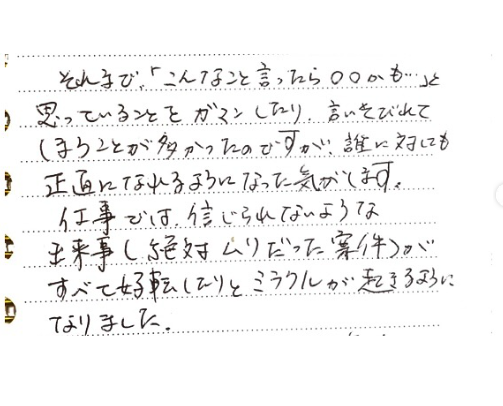 それまで、「こんなこと言ったら〇〇かも…」と
思っていることをガマンしたり、言いそびれて
しまうことが多かったのですが、誰に対しても
正直になれるようになった気がします。
仕事では、信じられないような
出来事(絶対ムリだった案件)が
すべて好転したりとミラクルが起きるように
なりました。